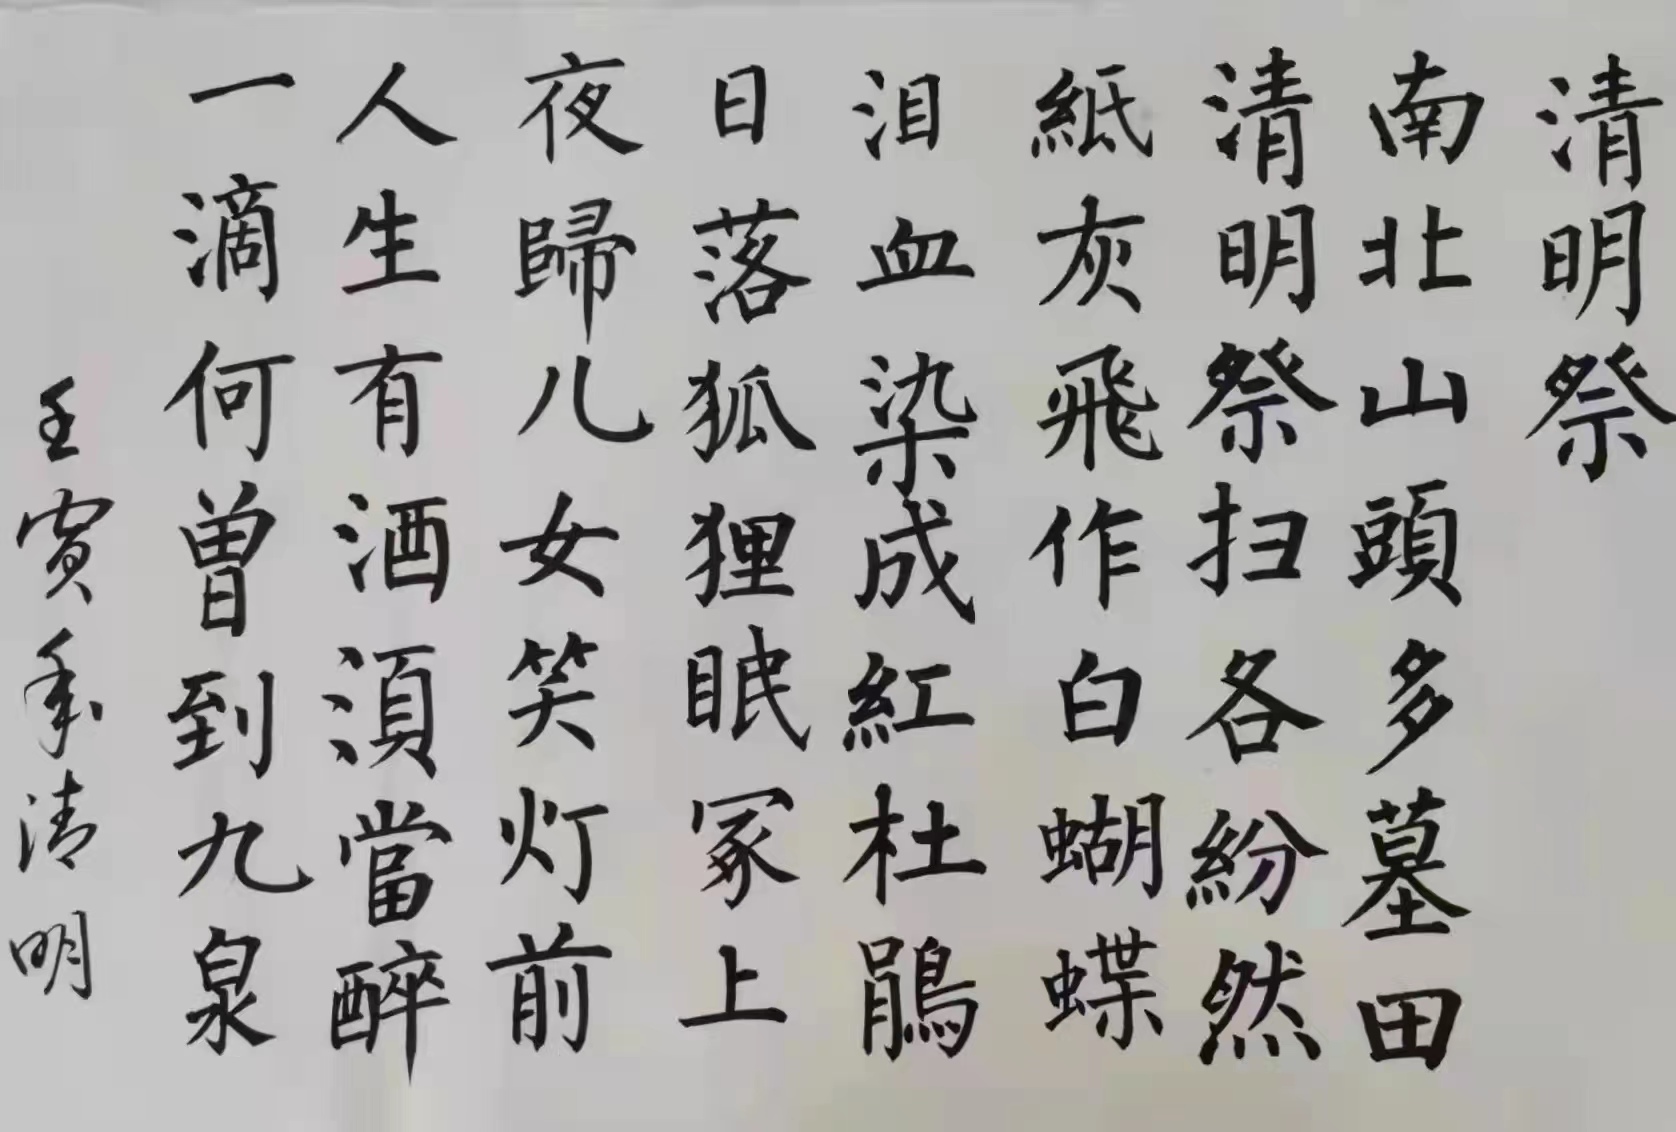 清明祭
南北山頭多墓田
清明祭扫各紛然
紙灰飛作白蝴蝶
泪血染成紅杜鵑
日落狐狸眠冢上
夜歸儿女笑灯前
人生有酒湏當醉
一滴何曾到九泉
壬寅年清明